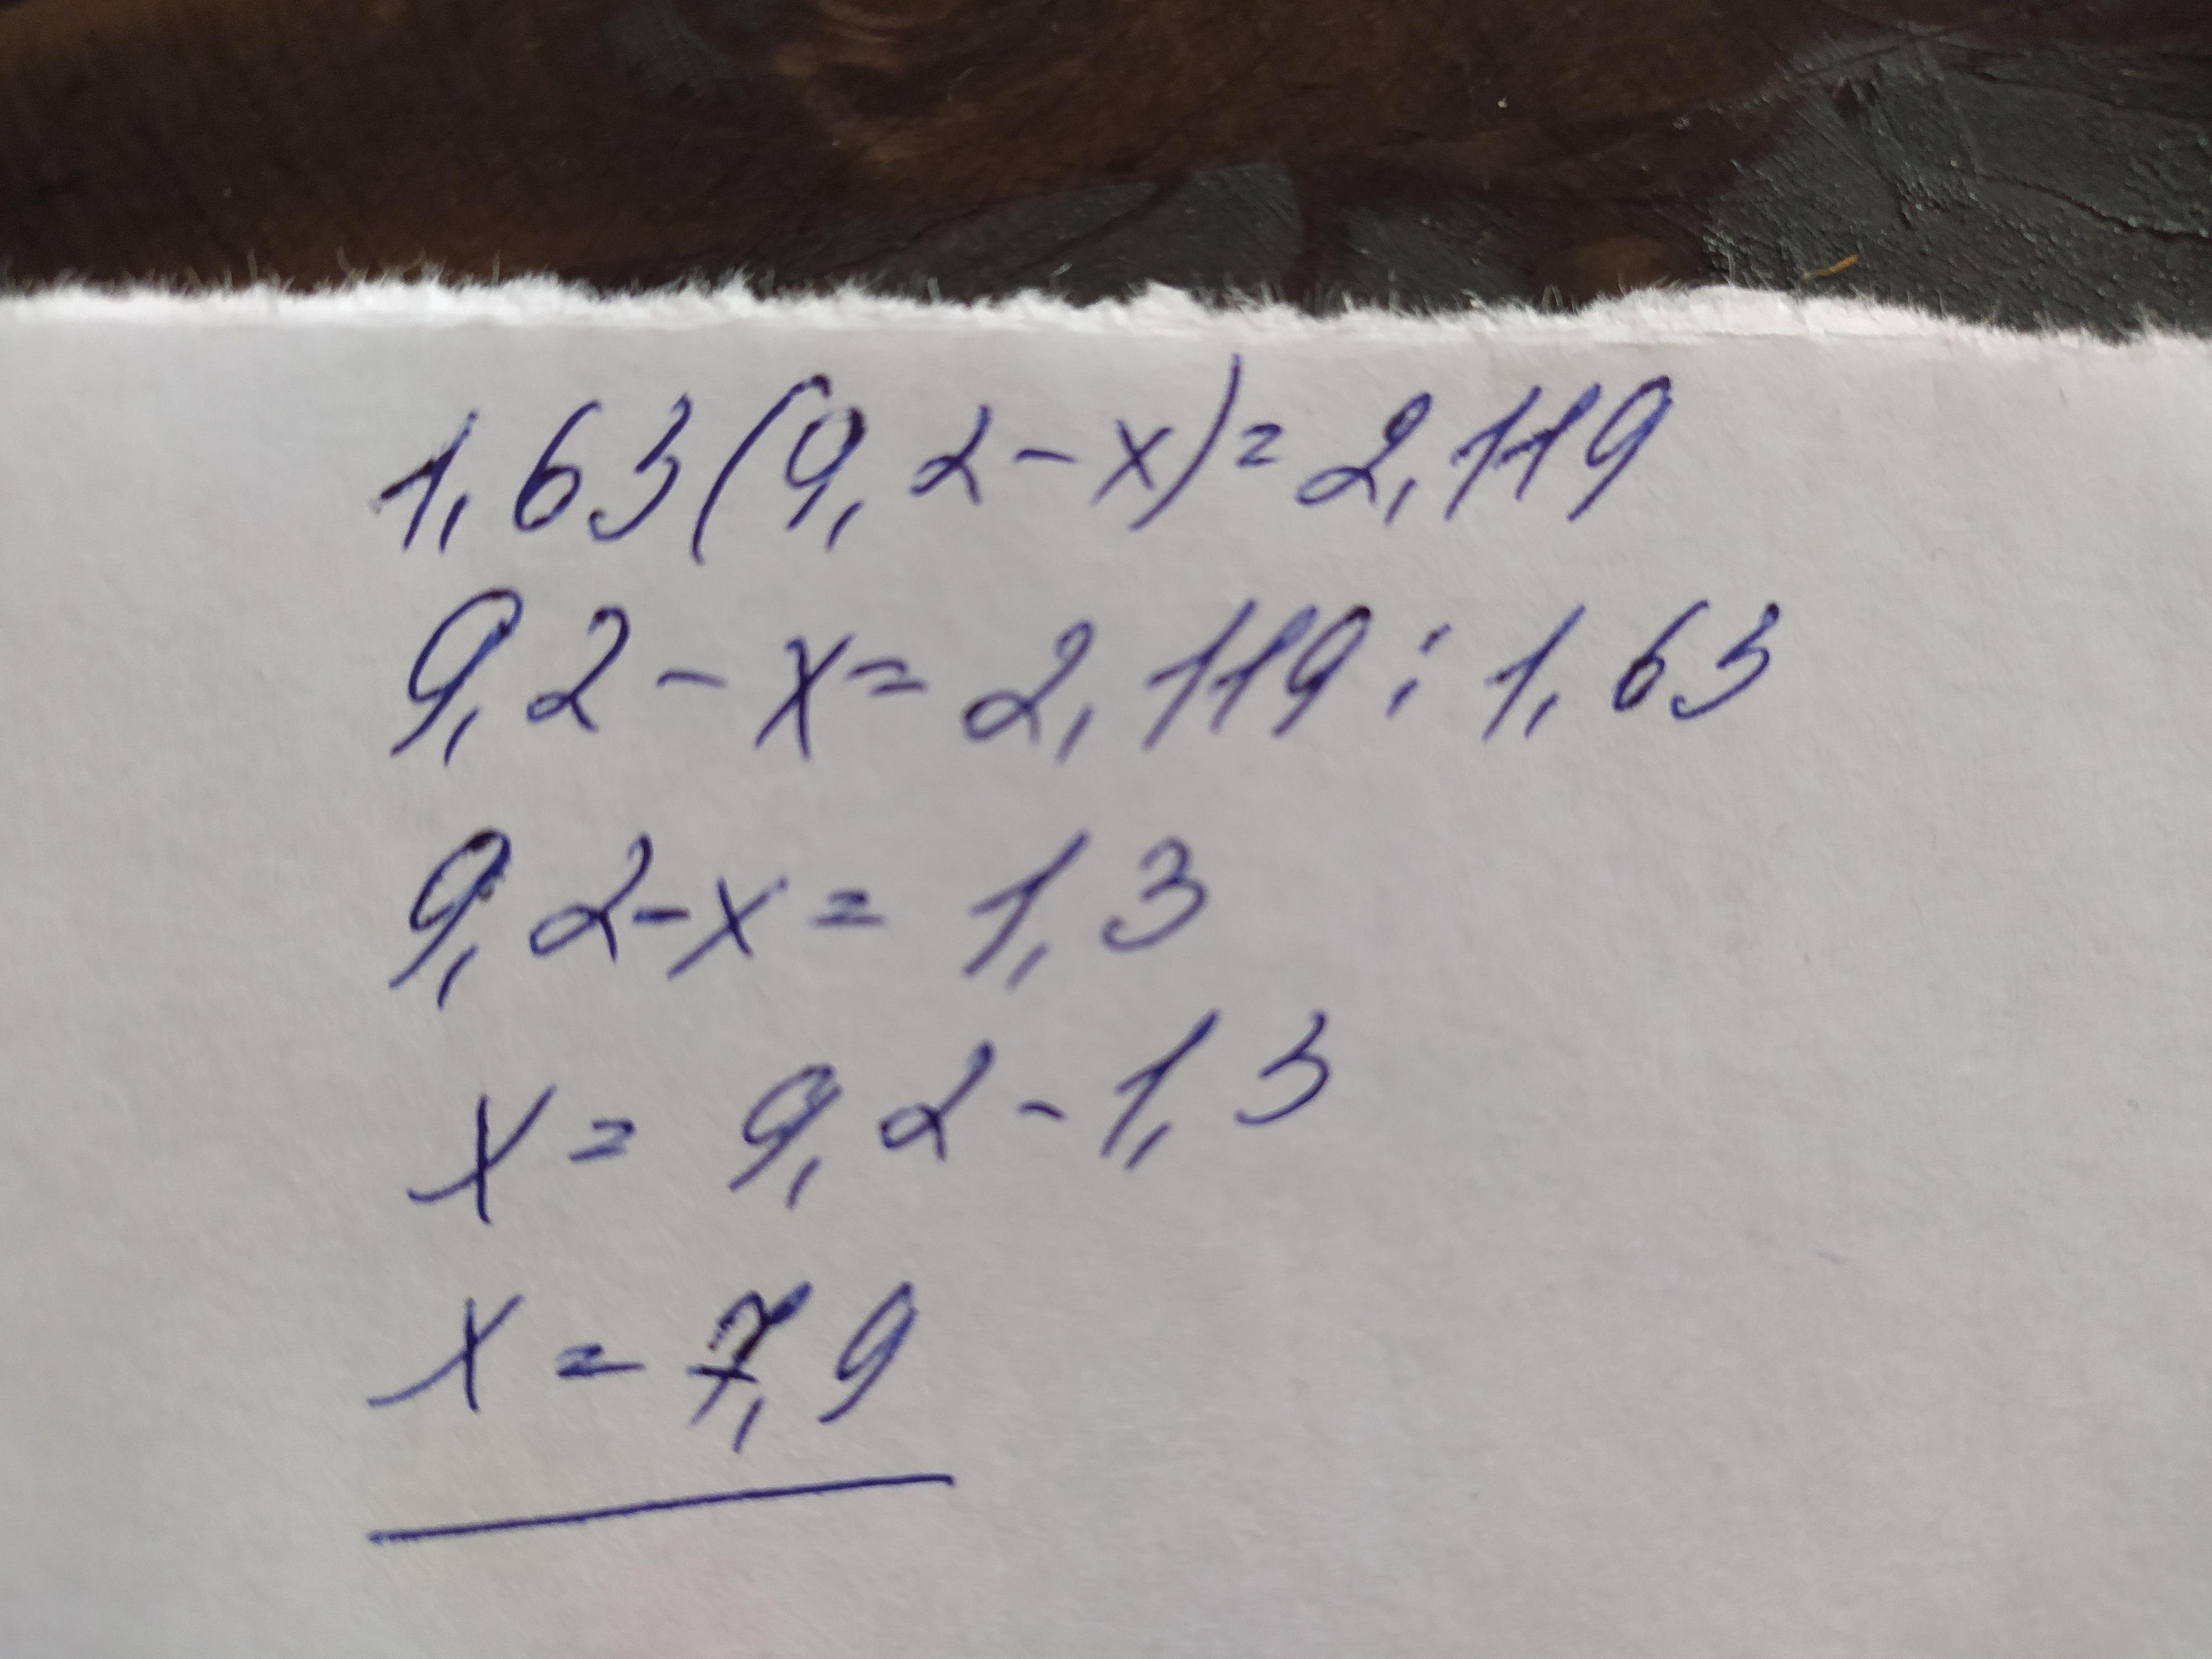 1,63(9,2-x)=2,119
9,2-x=2,119:1,63
9,2-x=1,3
x=9,2-1,3
x=7,9